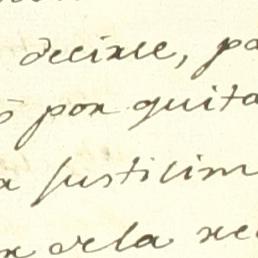 decirle, pa
por quita
justicim
dela re